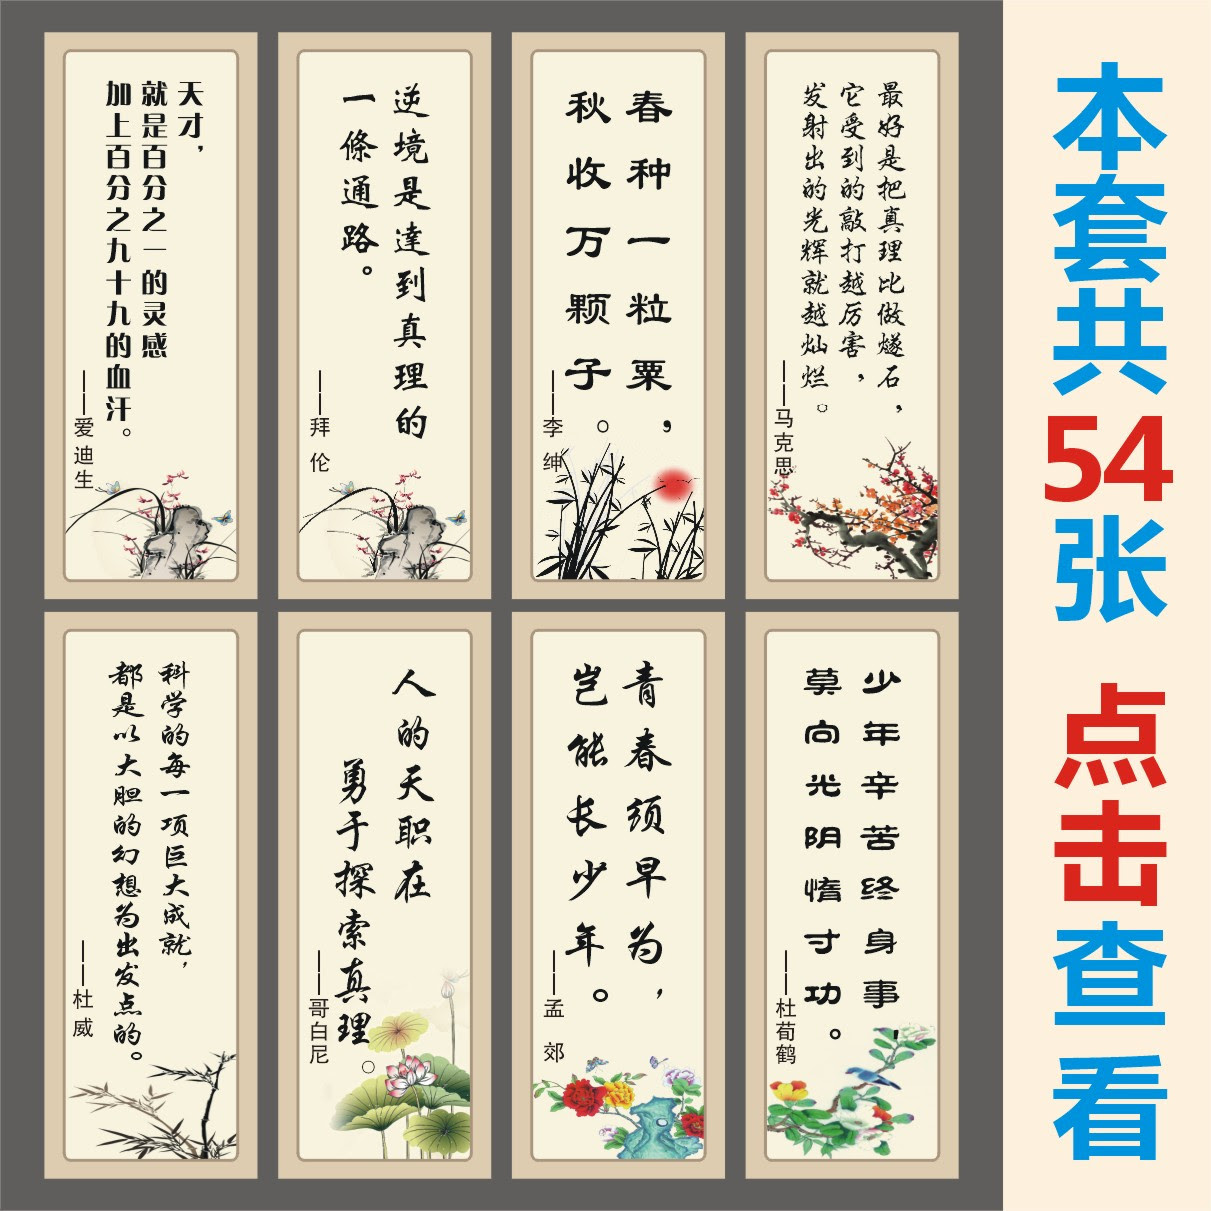 天才，
就是百分之一的灵感
加上百分之九十九的血汗。
——爱迪生
逆境是達到真理的
一條通路。
——拜伦
春种一粒粟，
秋收万颗子。
——李绅
最好是把真理比做燧石，
它受到的敲打越厉害，
发射出的光辉就越灿烂。
——马克思
科学的每一项巨大成就，
都是以大胆的幻想为出发点的。
——杜威
人的天职在
勇于探索真理。
——哥白尼
青春须早为，
岂能长少年。
——孟郊
少年辛苦终身事，
莫向光阴惰寸功。
——杜荀鹤
本套共54张 点击查看